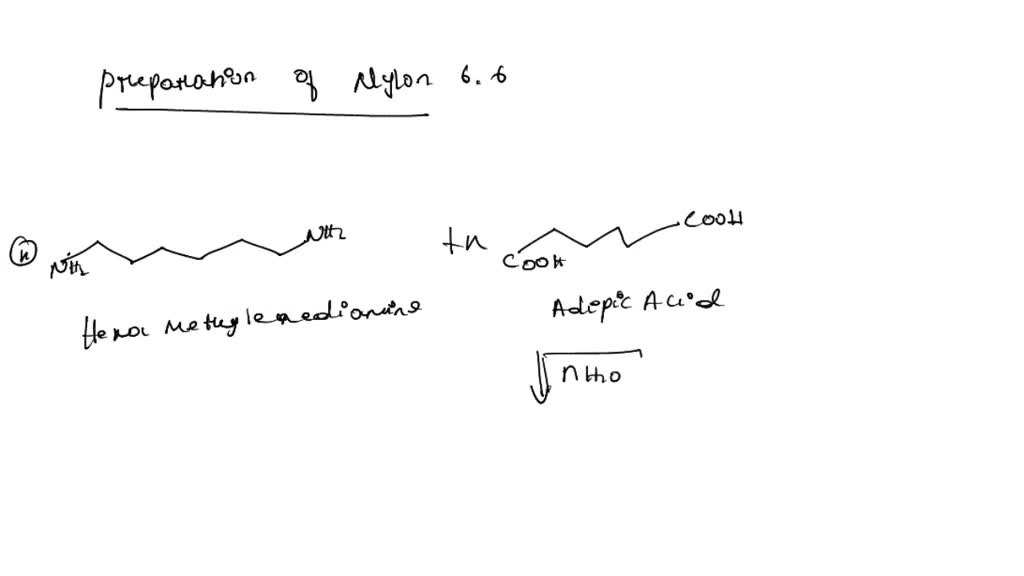 Preparation of Nylon 6.6
n NH2 NH2 + n COOH COOH
Hexa Methylenediamine Adipic Acid
nH2O